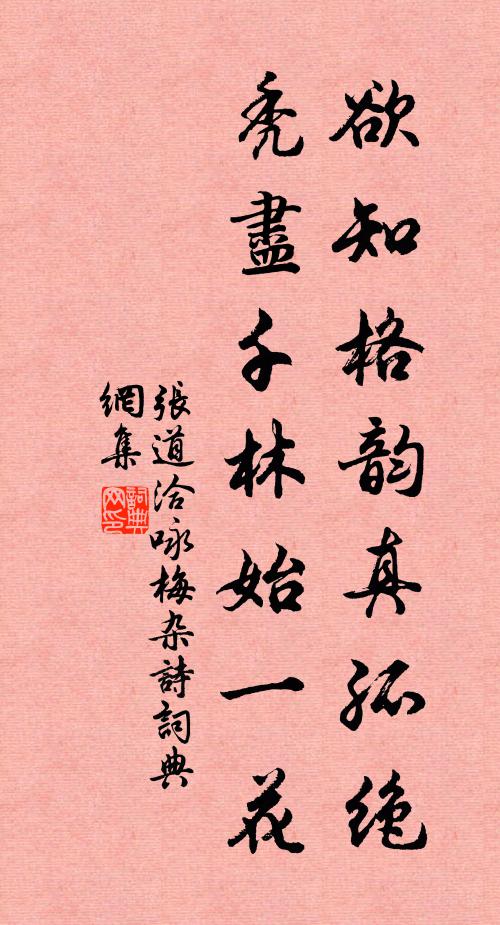 欲知格韵真孤绝
秃盡千林始一花
張道洽咏梅杂詩詞典
網集
詞典
网印